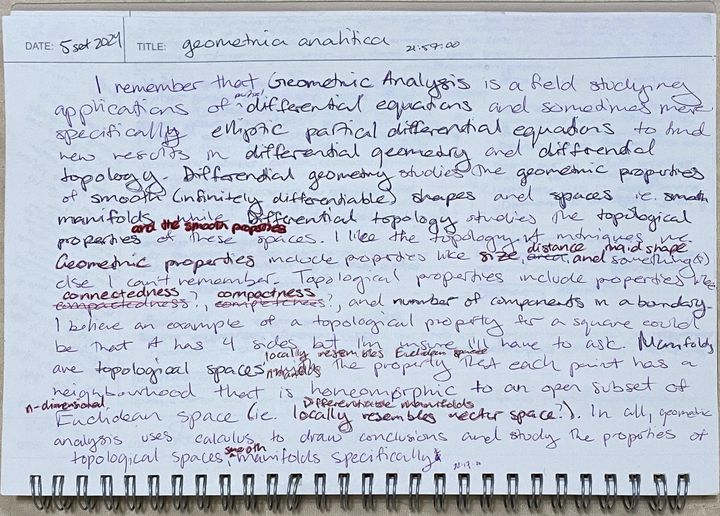 DATE: 5 set 2024 TITLE: geometria analítica 21:57:00
I remember that Geometric Analysis is a field studying
applications of partial differential equations and sometimes more
specifically elliptic partical differential equations to find
new results in differential geometry and differential
topology. Differential geometry studies the geometric properties
of smooth (infinitely differentiable) shapes and spaces i.e. smooth
manifolds while Differential topology studies the topological
and the smooth properties
properties of these spaces. I like the topology of
distance, shape
Geometric properties include properties like size, area, and something(s)
else I can't remember. Topological properties include properties like
connectedness compactness
compactedness?, competeness?, and number of components in a boundary.
I believe an example of a topological property for a square could
be that it has 4 sides but I'm unsure I'll have to ask. Manifolds
locally resembles Euclidean space
are topological spaces the property that each point has a
neighbourhood that is homeomorphic to an open subset of
n-dimensional Differentiable manifolds
Euclidean space (ie. locally resembles vector space?). In all, geometric
analysis uses calculus to draw conclusions and study the properties of
smooth
topological spaces, manifolds specifically.